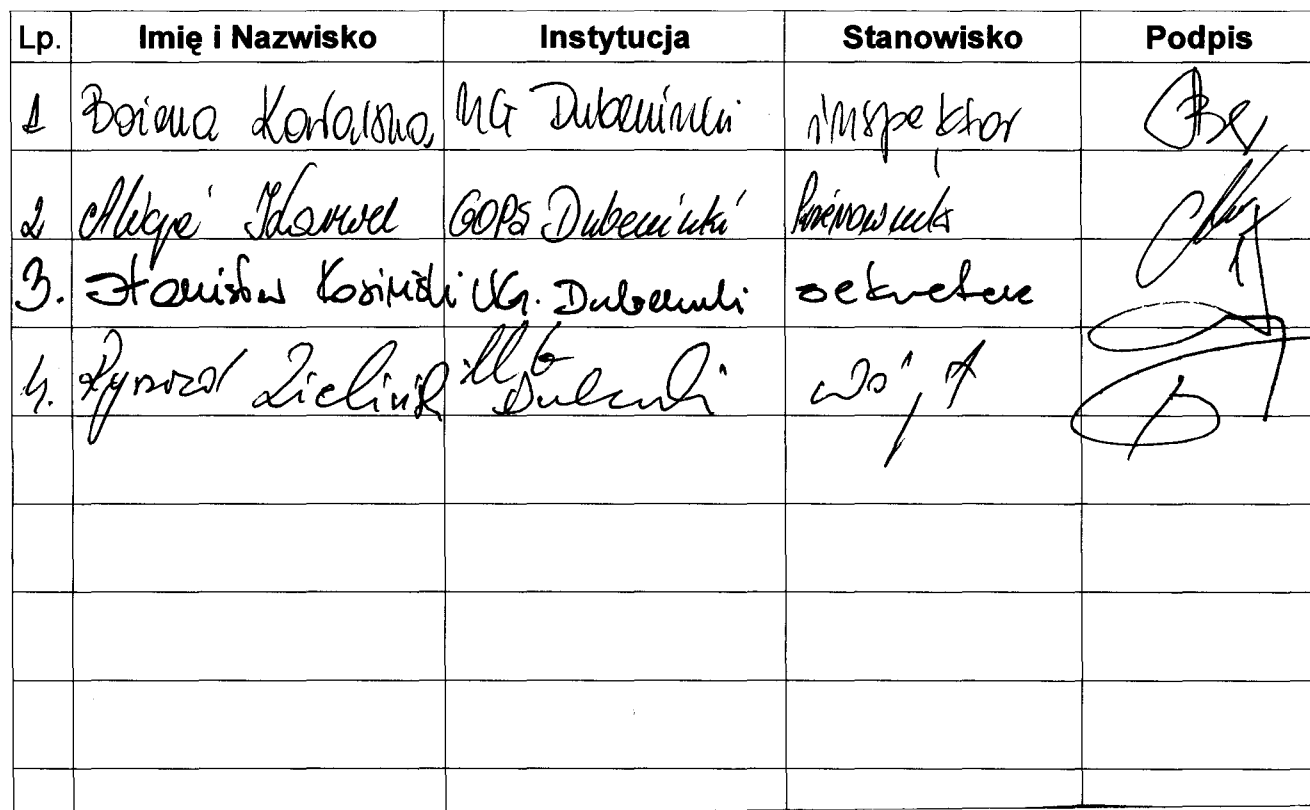 Lp. Imię i Nazwisko Instytucja Stanowisko Podpis
1 Bożena Kowalska UG Dubeninki inspektor
2 GOPS Dubeninki kierownik
3. Stanisław Kosiński UG. Dubeninki sekretarz
4. Ryszard Zieliński UG Dubeninki wójt